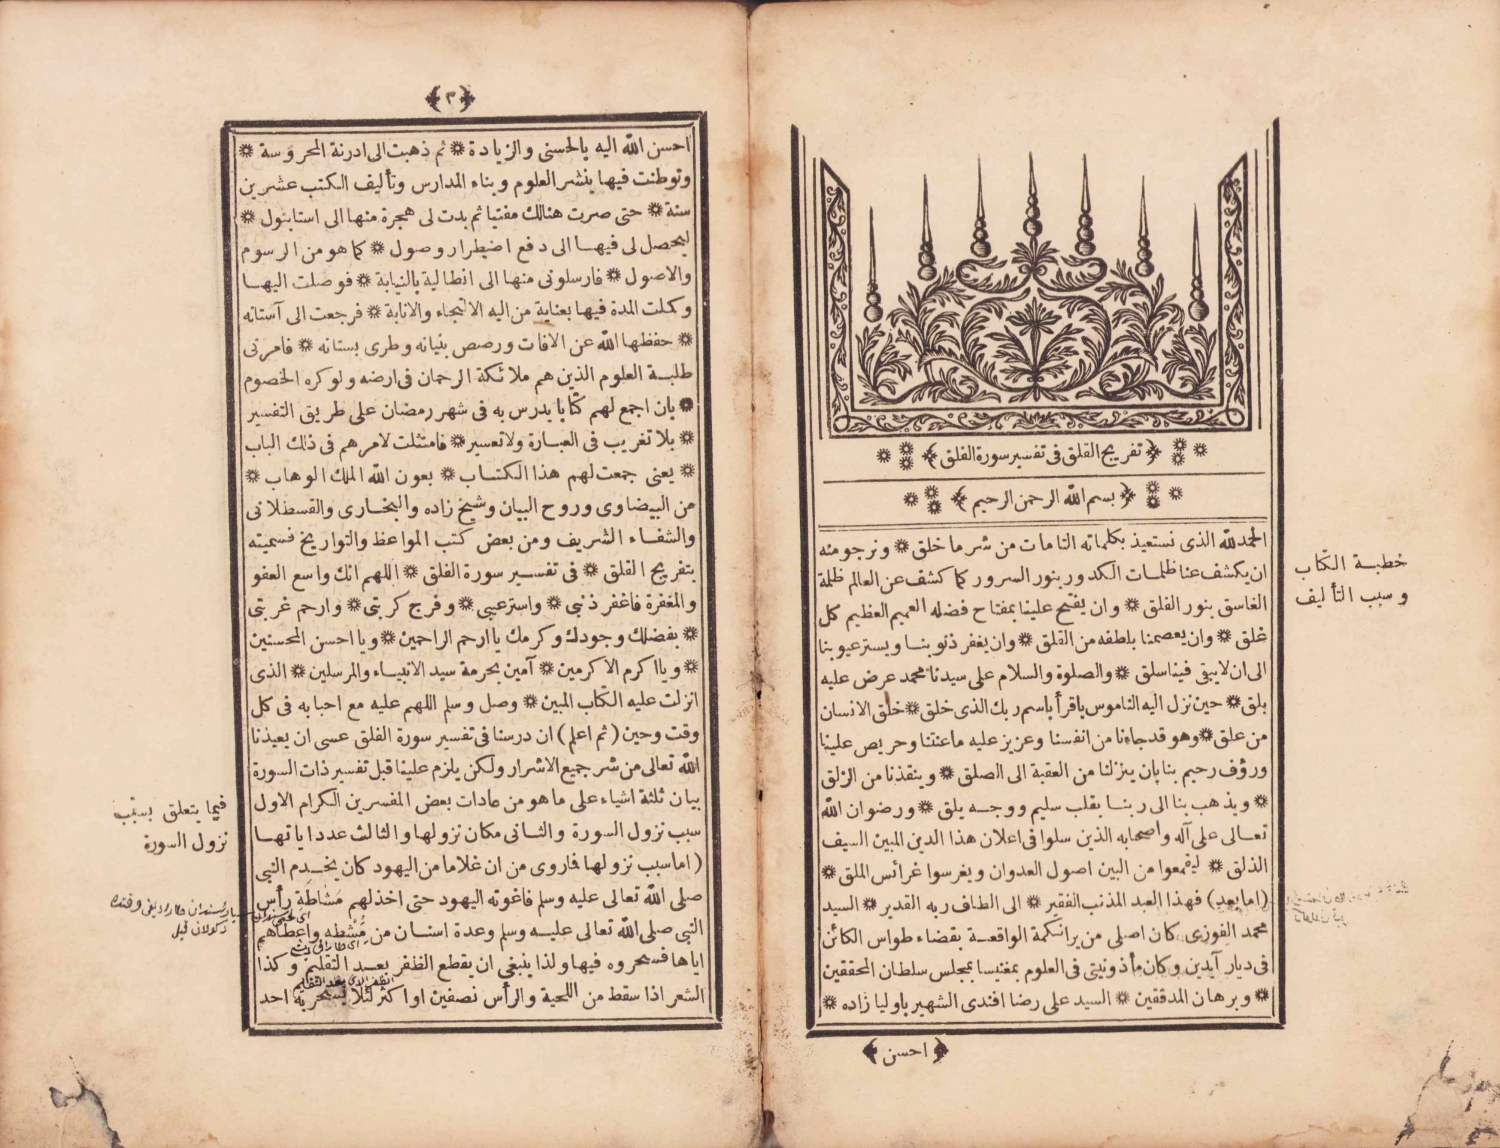 ﴿ تفريج القلق فى تفسير سورة الفلق ﴾
﴿ بسم الله الرحمن الرحيم ﴾
الحمد لله الذى نستعيذ بكلماته التامات من شر ما خلق ❋ ونرجو منه
ان يكشف عنا ظلمات الكدور بنور السرور كما كشف عن العالم ظلمة
الغاسق بنور الفلق ❋ وان يفتح علينا بمفتاح فضله العميم العظيم كل
غلق ❋ وان يعصمنا بلطفه من القلق ❋ وان يغفر ذنوبنا ويستر عيوبنا
الى ان لا يبقى فينا سلق ❋ والصلوة والسلام على سيدنا محمد عرض عليه
بلق ❋ حين نزل اليه الناموس باقرأ باسم ربك الذى خلق ❋ خلق الانسان
من علق ❋ وهو قد جاءنا من انفسنا وعزيز عليه ما عنتنا وحريص علينا
ورؤف رحيم بنا بان ينزلنا من العقبة الى الصلق ❋ وينقذنا من الزلق
❋ ويذهب بنا الى ربنا بقلب سليم ووجه يلق ❋ ورضوان الله
تعالى على آله واصحابه الذين سلوا فى اعلان هذا الدين المبين السيف
الذلق ❋ ليقمعوا من البين اصول العدوان ويغرسوا غرائس الملق ❋
(اما بعد) فهذا العبد المذنب الفقير ❋ الى الطاف ربه القدير ❋ السيد
محمد الفوزى كان اصلى من الواقعة بقضاء طواس الكائن
فى ديار آيدين وكان مأذونيتى فى العلوم بمغنيسا بمجلس سلطان المحققين
❋ وبرهان المدققين ❋ السيد على رضا افندى الشهير باوليا زاده ❋
﴿ احسن ﴾
خطبة الكتاب
وسبب التأليف
﴿ ٣ ﴾
احسن الله اليه بالحسنى والزيادة ❋ ثم ذهبت الى ادرنة المحروسة ❋
وتوطنت فيها بنشر العلوم وبناء المدارس وتأليف الكتب عشرين
سنة ❋ حتى صرت هنالك مفتيا ثم بدت لى هجرة منها الى استانبول ❋
ليحصل لى فيها الى دفع اضطرار وصول ❋ كما هو من الرسوم
والاصول ❋ فارسلونى منها الى انطالية بالنيابة ❋ فوصلت اليها
وكملت المدة فيها بعناية من اليه الالتجاء والانابة ❋ فرجعت الى آستانه
❋ حفظها الله عن الافات ورصص بنيانه وطرى بستانه ❋ فامرنى
طلبة العلوم الذين هم ملائكة الرحمان فى ارضه ولو كره الخصوم
❋ بان اجمع لهم كتابا يدرس به فى شهر رمضان على طريق التفسير
❋ بلا تغريب فى العبارة ولا تعسير ❋ فامتثلت لامرهم فى ذلك الباب
❋ يعنى جمعت لهم هذا الكتاب ❋ بعون الله الملك الوهاب ❋
من البيضاوى وروح البيان وشيخ زاده والبخارى والقسطلانى
والشفاء الشريف ومن بعض كتب المواعظ والتواريخ فسميته
بتفريج القلق ❋ فى تفسير سورة الفلق ❋ اللهم انك واسع العفو
والمغفرة فاغفر ذنبى ❋ واستر عيبى ❋ وفرج كربتى ❋ وارحم غربتى
❋ بفضلك وجودك وكرمك يا ارحم الراحمين ❋ ويا احسن المحسنين
❋ ويا اكرم الاكرمين ❋ آمين بحرمة سيد الانبياء والمرسلين ❋ الذى
انزلت عليه الكتاب المبين ❋ وصل وسلم اللهم عليه مع احبابه فى كل
وقت وحين (ثم اعلم) ان درسنا فى تفسير سورة الفلق عسى ان يعيذنا
الله تعالى من شر جميع الاشرار ولكن يلزم علينا قبل تفسير ذات السورة
بيان ثلثة اشياء على ما هو من عادات بعض المفسرين الكرام الاول
سبب نزول السورة والثانى مكان نزولها والثالث عدد اياتها
(اما سبب نزولها فاروى من ان غلاما من اليهود كان يخدم النبى
صلى الله تعالى عليه وسلم فاغوته اليهود حتى اخذ لهم مشاطة رأس
النبى صلى الله تعالى عليه وسلم وعدة اسنان من مشطه واعطاهم
اياها فسحروه فيها ولذا ينبغى ان يقطع الظفر بعد التقليم وكذا
الشعر اذا سقط من اللحية والرأس نصفين او اكثر لئلا يسحر به احد
فيما يتعلق بسبب
نزول السورة